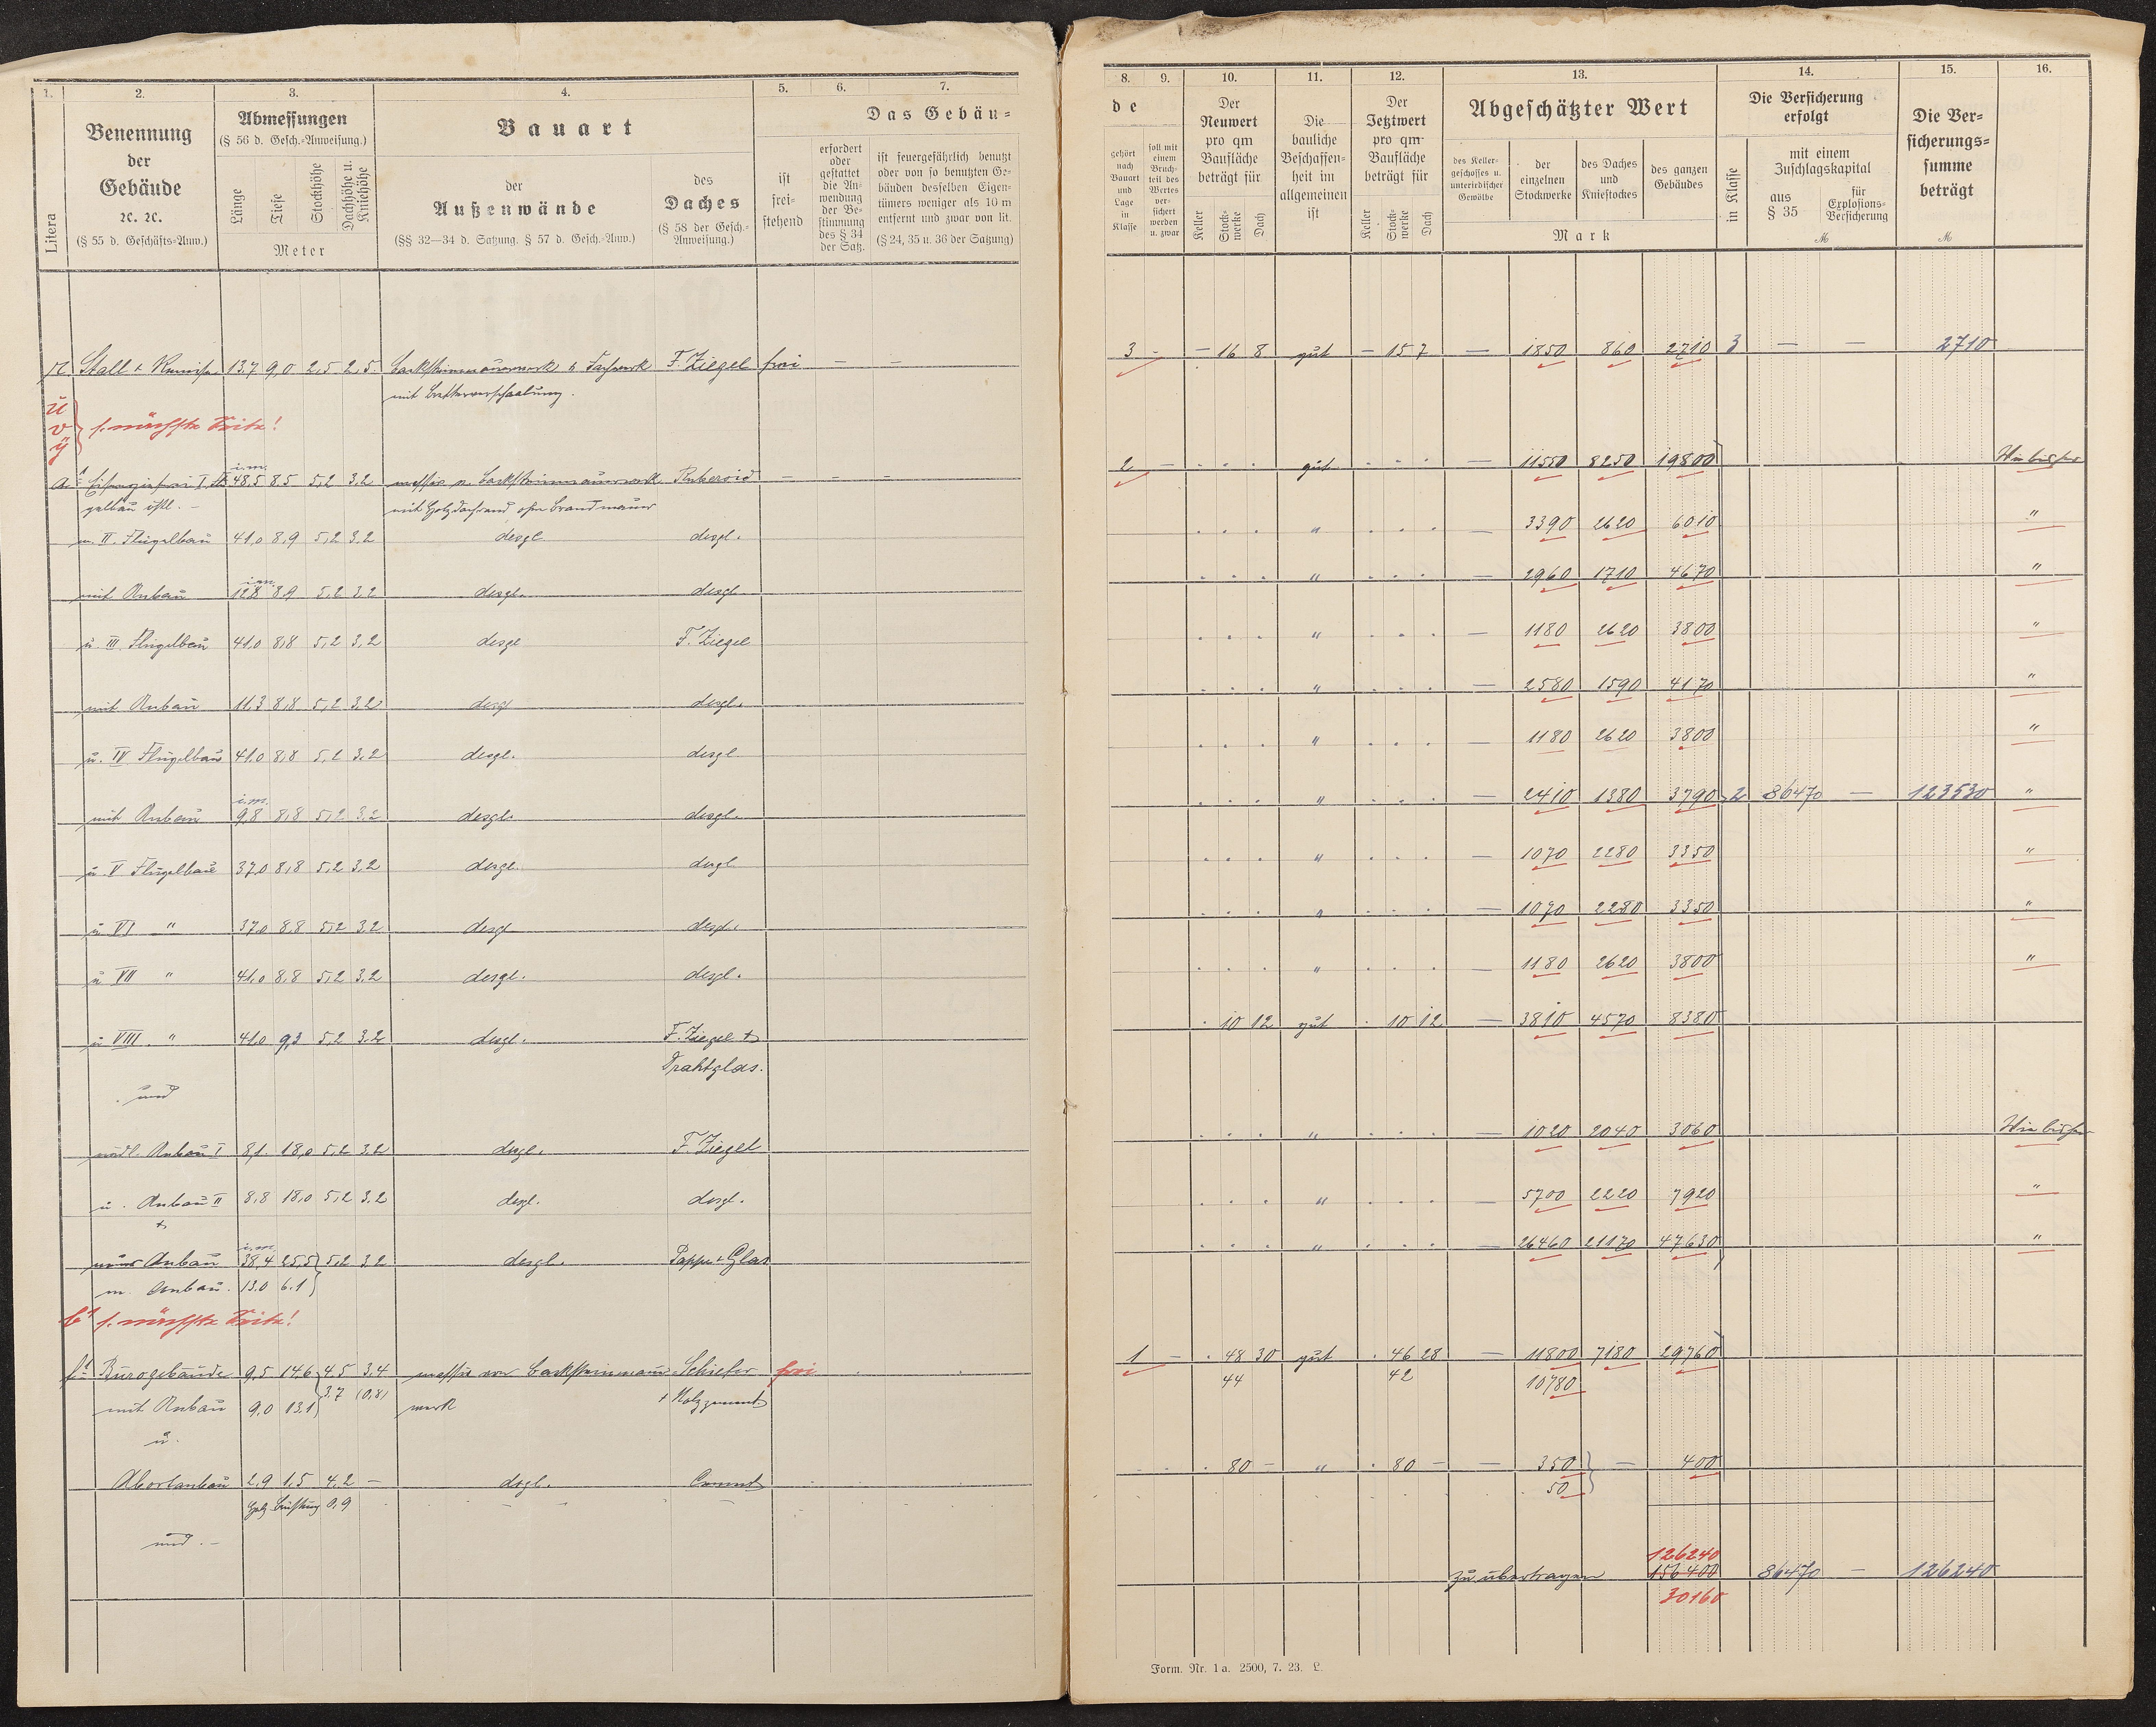 1. 2. 3. 4. 5. 6. 7.
Litera
Benennung
der
Gebäude
ꝛc. ꝛc.
(§ 55 d. Geschäfts-Anw.)
Abmessungen
(§ 56 d. Gesch.-Anweisung.)
Länge
Tiefe
Stockhöhe
Dachhöhe u. Kniehöhe
Meter
Bauart
der
Außenwände
(§§ 32—34 d. Satzung. § 57 d. Gesch.-Anw.)
des
Daches
(§ 58 der Gesch.-Anweisung.)
Das Gebäu-
ist frei-stehend
erfordert oder gestattet die An-wendung der Be-stimmung des § 34 der Satz.
ist feuergefährlich benutzt oder von so benutzten Ge-bäuden desselben Eigen-tümers weniger als 10 m entfernt und zwar von lit.
(§ 24, 35 u. 36 der Satzung)
Stall + Remise 13,7 9,0 2,5 2,5 Backsteinmauerwerk & Fachwerk F. Ziegel frei — —
mit Bretterverschaalung.
ü
v
ÿ
s. nächste Seite!
i.m.
a¹ 48,5 8,5 5,2 3,2 massiv v. Backsteinmauerwerk Ruberoid — — —
gelbau östl. — mit Holzdachrand ohne Brandmauer
m. II. Flügelbau 41,0 8,9 5,2 3,2 desgl. desgl.
i.m.
mit Anbau 12,8 8,9 5,2 3,2 desgl. desgl.
u. III. Flügelbau 41,0 8,8 5,2 3,2 desgl. F. Ziegel
mit Anbau 11,3 8,8 5,2 3,2 desgl. desgl.
u. IV Flügelbau 41,0 8,8 5,2 3,2 desgl. desgl.
i.m.
mit Anbau 9,8 8,8 5,2 3,2 desgl. desgl.
u. V Flügelbau 37,0 8,8 5,2 3,2 desgl. desgl.
u VI " 37,0 8,8 5,2 3,2 desgl. desgl.
u VII " 41,0 8,8 5,2 3,2 desgl. desgl.
u VIII. " 41,0 9,3 5,2 3,2 desgl. F. Ziegel +
Drahtglas.
und
nördl. Anbau I 8,1 18,0 5,2 3,2 desgl. F. Ziegel
u. Anbau II 8,8 18,0 5,2 3,2 desgl. desgl.
+
i.m.
neuer Anbau 38,4 25,5 5,2 3,2 desgl. Pappe + Glas
m. Anbau. 13,0 6,1
b¹ s. nächste Seite!
Bürogebäude 9,5 14,6 4,5 3,4 massiv von Backsteinmauer- Schiefer frei
mit Anbau 9,0 13,1 3,7 (0,8) werk + Holzzement
u.
Abortanbau 2,9 1,5 4,2 — desgl. Cement
Holz Brüstung 0,9
und. —
8. 9. 10. 11. 12. 13. 14. 15. 16.
de
gehört nach Bauart und Lage in Klasse
soll mit einem Bruch-teil des Wertes ver-sichert werden u. zwar
Der
Neuwert
pro qm
Baufläche
beträgt für
Keller
Stock-werke
Dach
Die
bauliche
Beschaffen-
heit im
allgemeinen
ist
Der
Jetztwert
pro qm
Baufläche
beträgt für
Keller
Stock-werke
Dach
Abgeschätzter Wert
des Keller-geschosses u. unterirdischer Gewölbe
der einzelnen Stockwerke
des Daches und Kniestockes
des ganzen Gebäudes
Mark
Die Versicherung
erfolgt
in Klasse
mit einem
Zuschlagskapital
aus § 35
für Explosions-Versicherung
ℳ
Die Ver-
sicherungs-
summe
beträgt
ℳ
3 — — 16 8 gut — 15 7 — 1850 860 2710 3 — — 2710
2 — . . . gut . . . — 11550 8250 19800 Wie bisher
. . . " . . . — 3390 2620 6010 "
. . . " . . . — 2960 1710 4670 "
. . . " . . . — 1180 2620 3800 "
. . . " . . . — 2580 1590 4170 "
. . . " . . . — 1180 2620 3800 "
. . . " . . . — 2410 1380 3790 2 86470 — 123530 "
. . . " . . . — 1070 2280 3350 "
. . . " . . . — 1070 2280 3350 "
. . . " . . . — 1180 2620 3800 "
. 10 12 gut . 10 12 — 3810 4570 8380
. . . " . . . — 1020 2040 3060 Wie bisher
. . . " . . . — 5700 2220 7920 "
. . . " . . . — 26460 21170 47630 "
1 — . 48 30 gut . 46 28 — 11800 7180 29760
44 42 10780
. 80 — " . 80 — — 350 — 400
50
126240
zu übertragen 156400 86470 — 126240
30160
Form. Nr. 1 a. 2500, 7. 23. L.